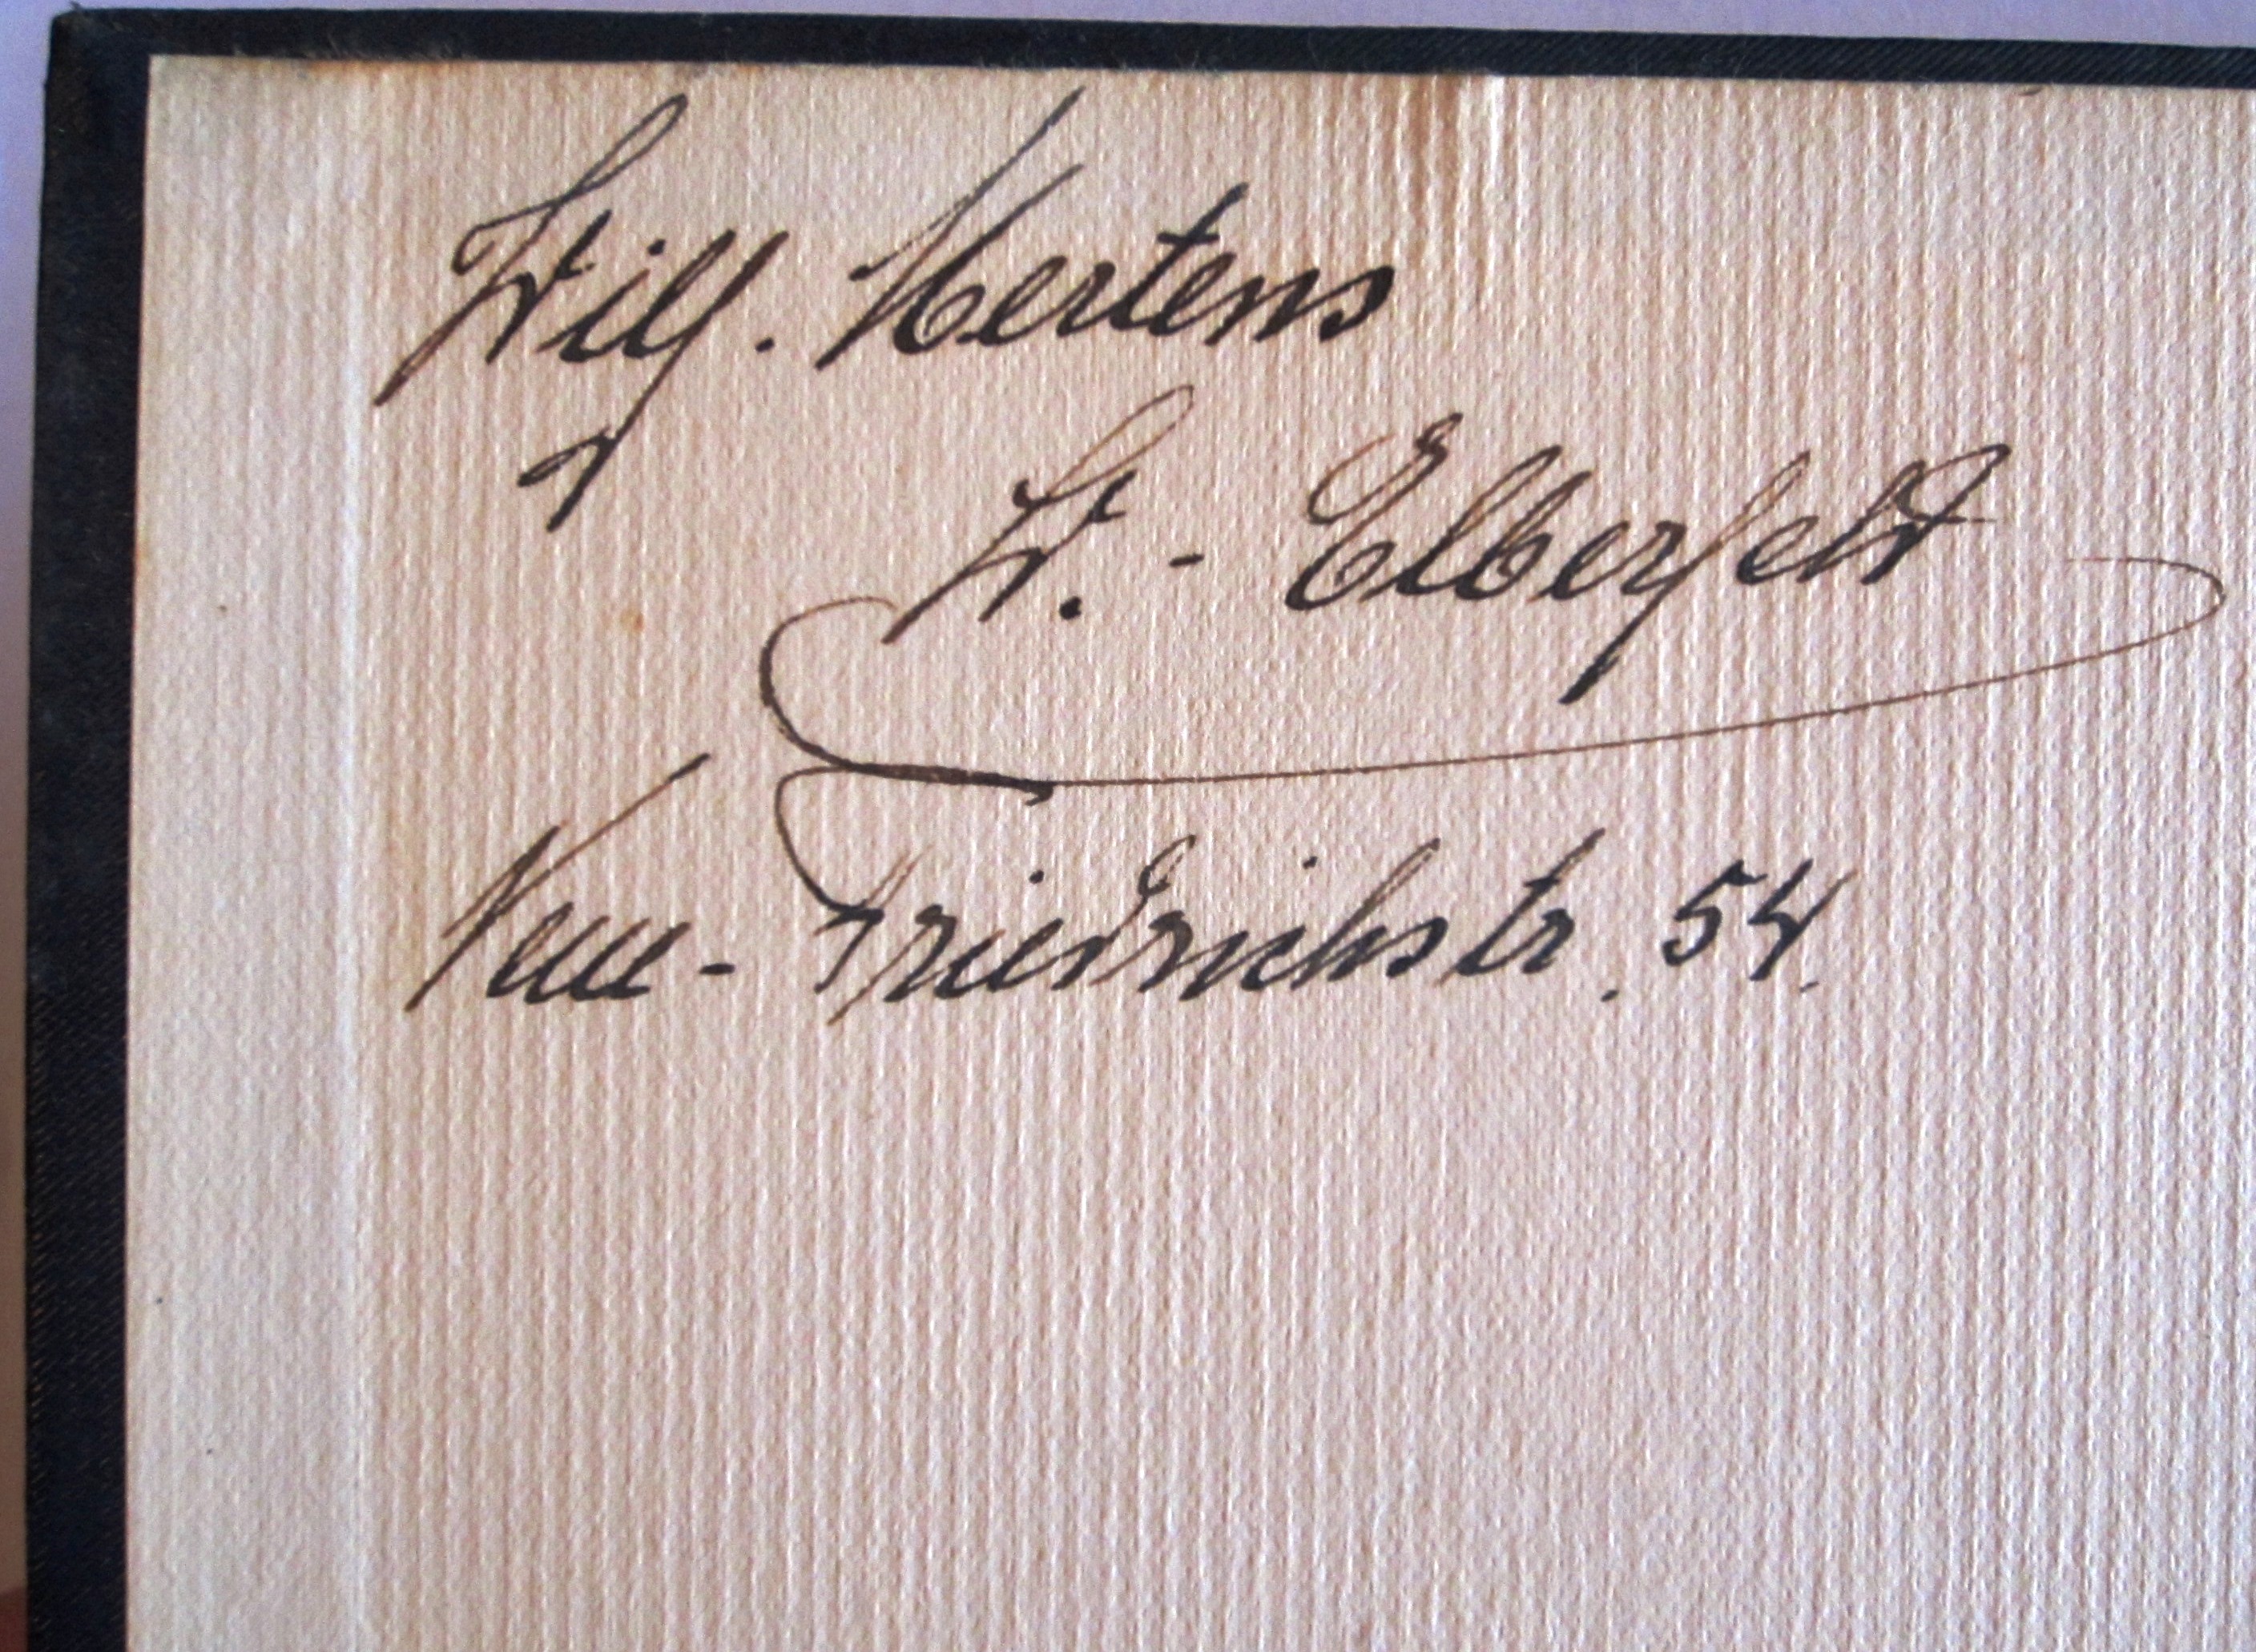 Wilh. Mertens
W. - Elberfeld
Neue - Friedrichstr. 54.